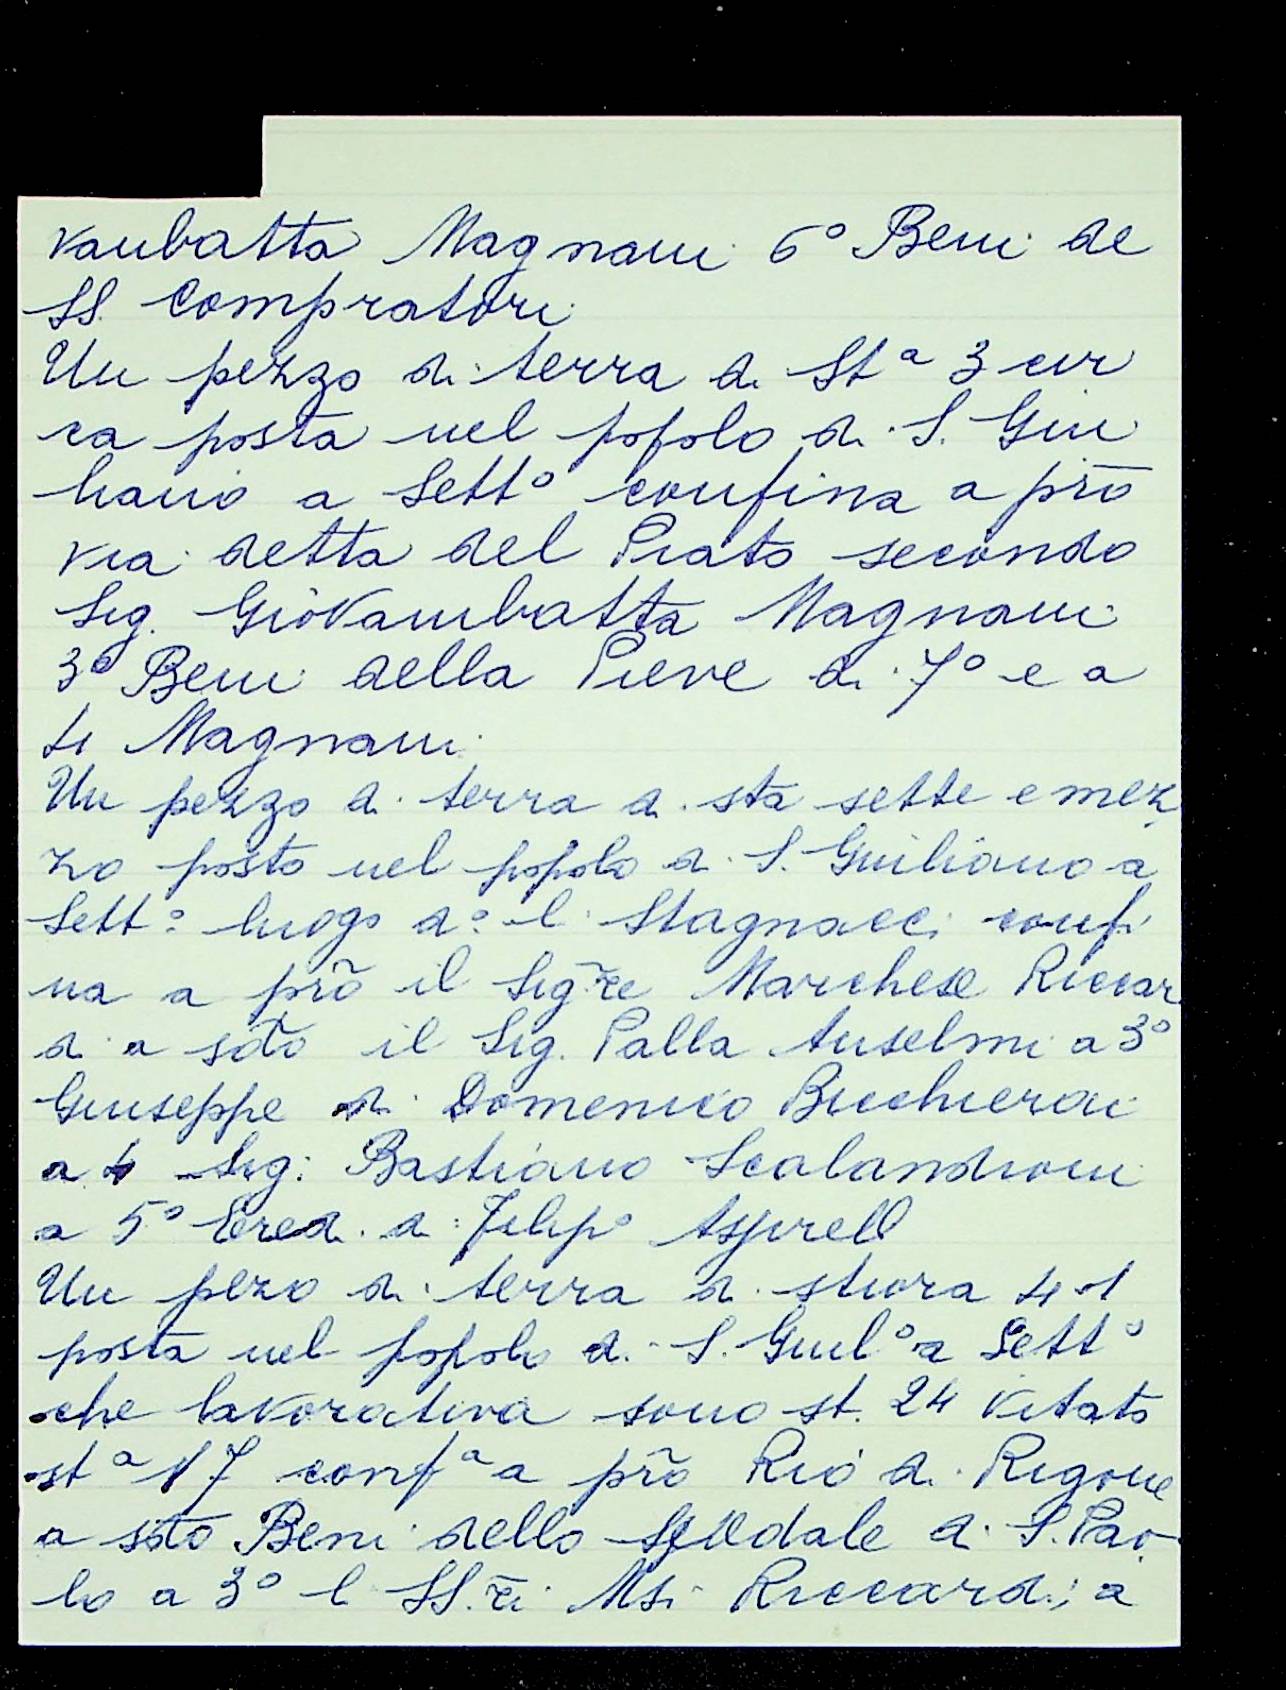 vanbatta Magnani 6° Beni de
SS. Compratori
Un pezzo di terra di St.ª 3 cir
ca posta nel popolo di S. Giu
liano a Sett° confina a prõ
via detta del Prato secondo
Sig. Giovambatta Magnani
3° Beni della Pieve di 7° e a
4 Magnani
Un pezzo di terra di sta sette e mez
zo posto nel popolo di S. Guiliano a
Sett.° luogo d.° l Stagnacci confi
na a prõ il Sig̃re Marchese Riccar
di a sõto il Sig. Palla Anselmi a 3°
Giuseppe di Domenico Bucchierai
a 4 Sig: Bastiano Scalandroni
a 5° Ered. di Filip°
Un pezo di terra di stiora 41
posta nel popolo di S. Giul° a Sett°
che lavorativa sono st. 24 vitato
st.ª 17 conf.ª a prõ Rio di Rigone
a sõto Beni dello Spedale di S. Pao
lo a 3° l SS.ri Msi Riccardi; a